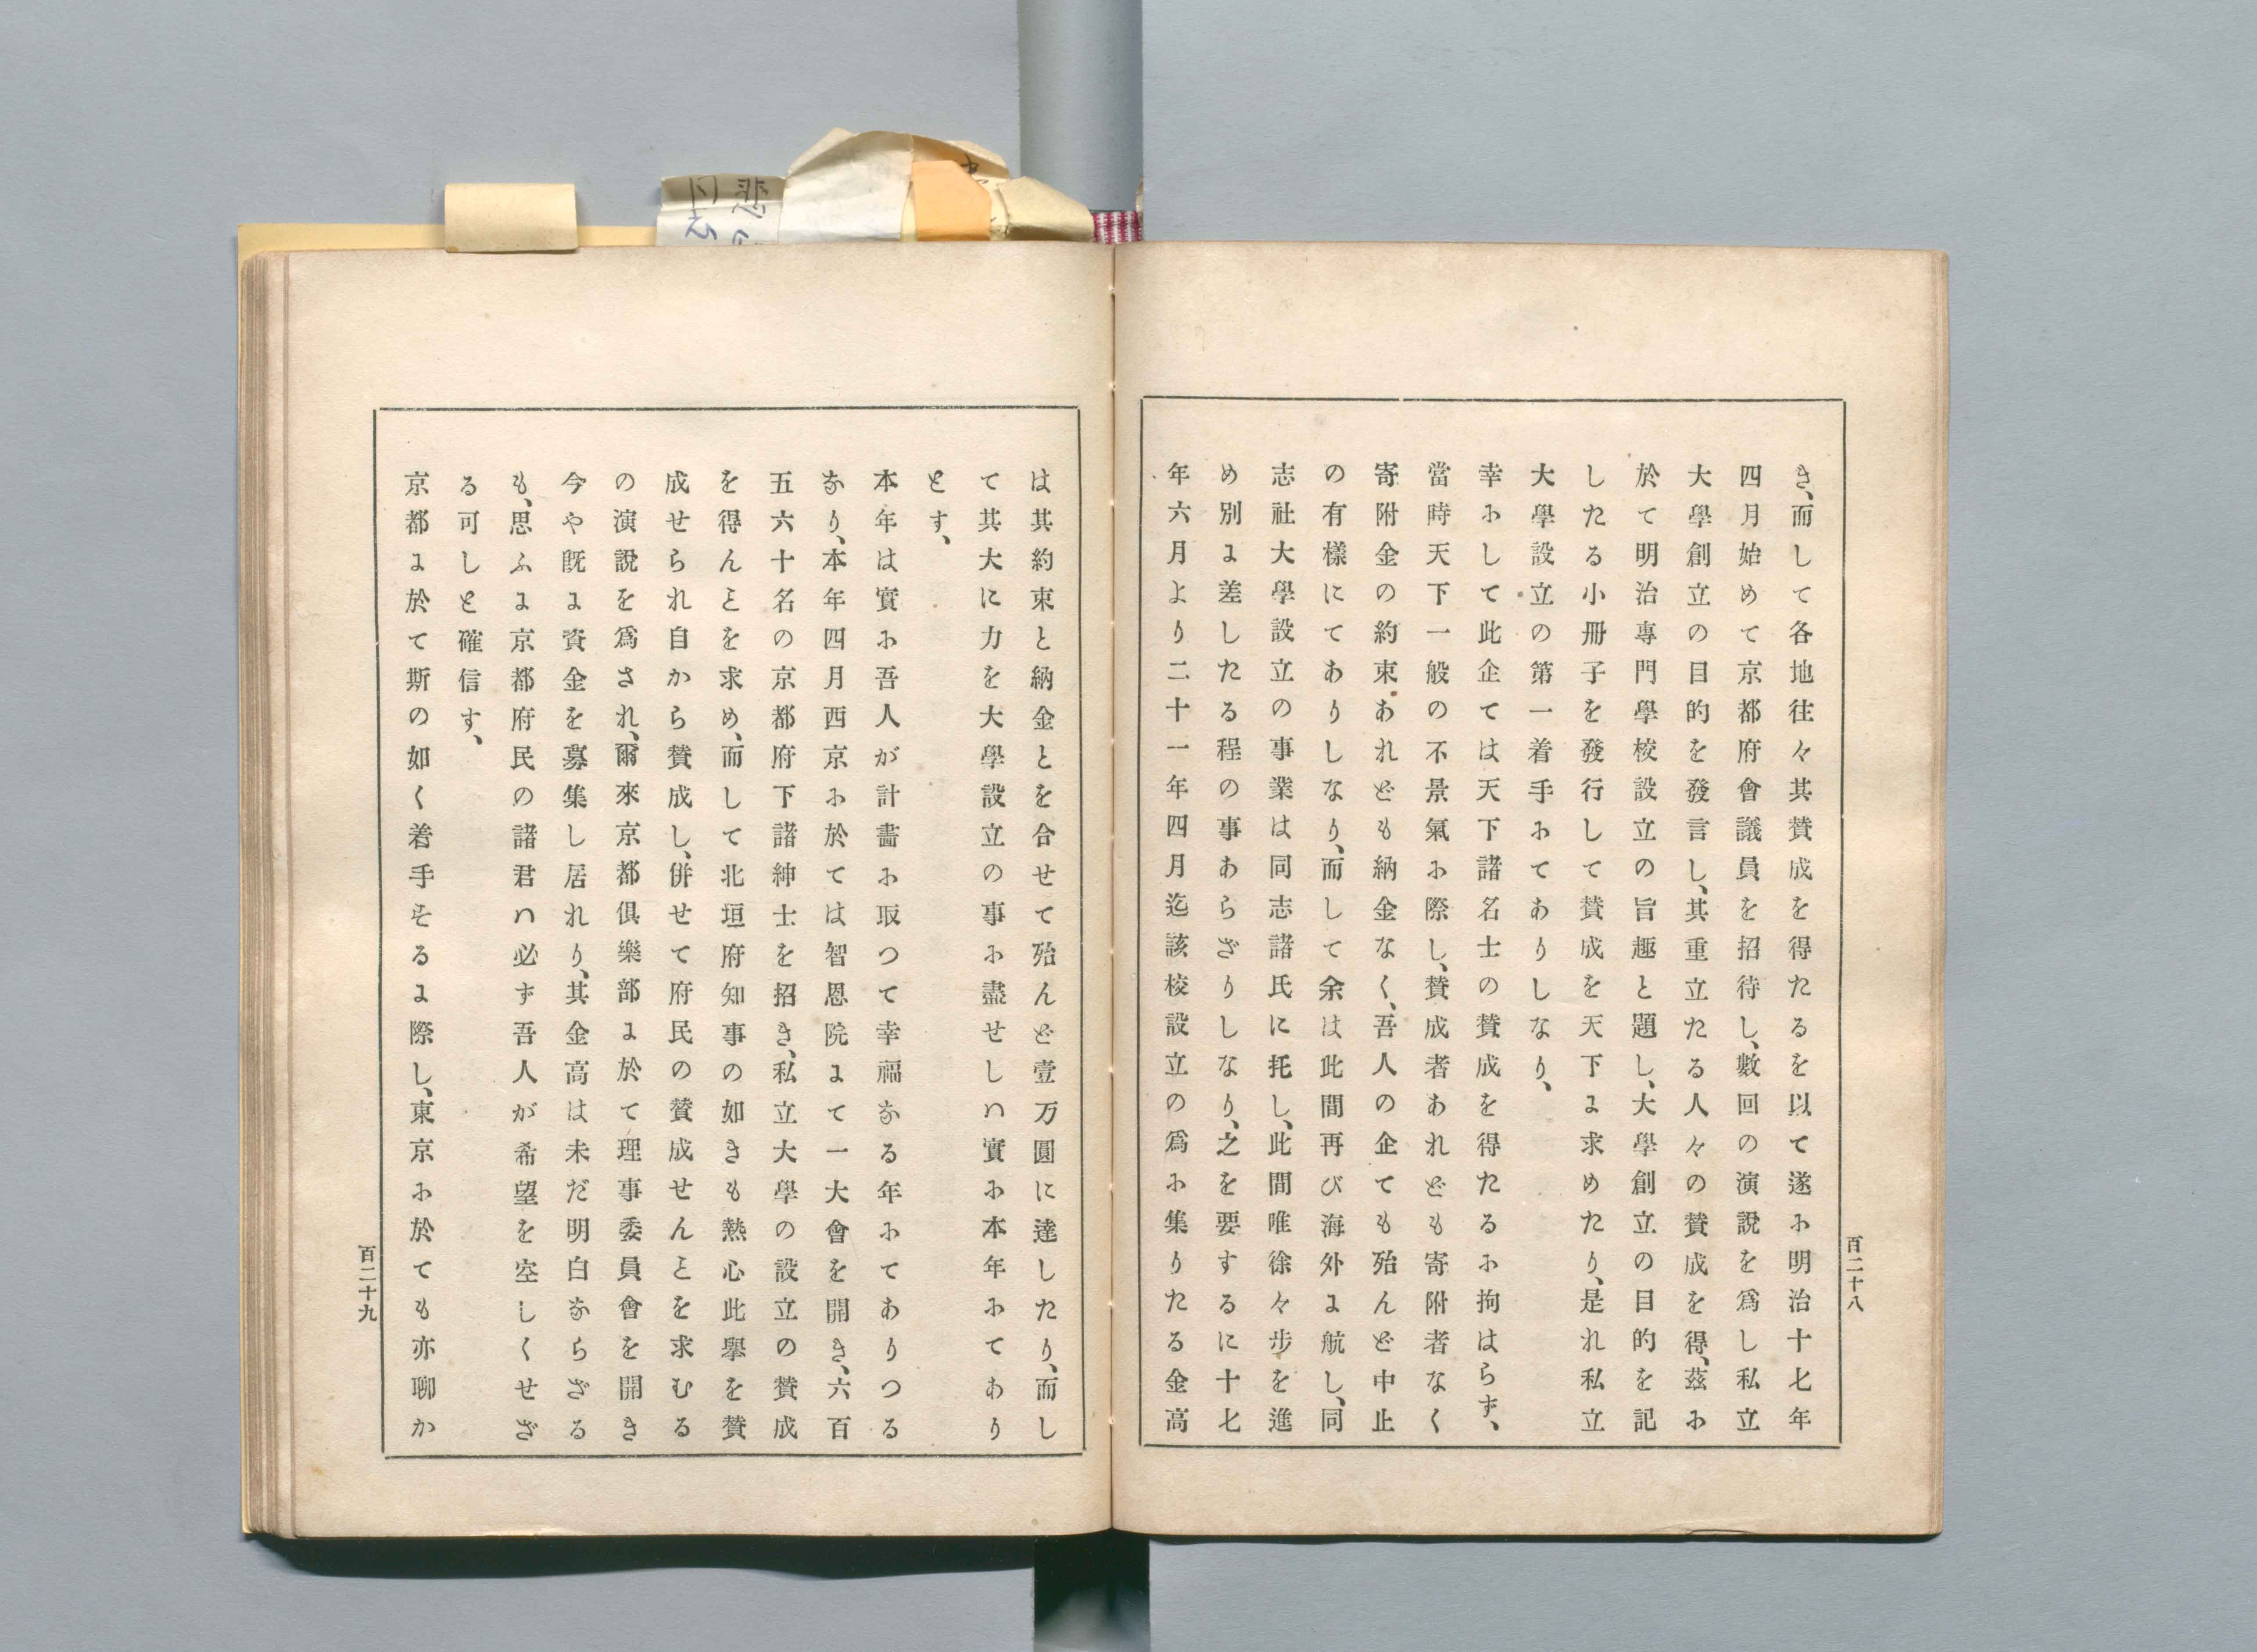 百二十八
き、而して各地往々其賛成を得たるを以て遂に明治十七年
四月始めて京都府會議員を招待し、數回の演説を爲し私立
大學創立の目的を發言し、其重立たる人々の賛成を得、茲に
於て明治專門學校設立の旨趣と題し、大學創立の目的を記
したる小冊子を發行して賛成を天下に求めたり、是れ私立
大學設立の第一着手にてありしなり、
幸にして此企ては天下諸名士の賛成を得たるに拘はらず、
當時天下一般の不景氣に際し、賛成者あれども寄附者なく
寄附金の約束あれども納金なく、吾人の企ても殆んど中止
の有樣にてありしなり、而して余は此間再び海外に航し、同
志社大學設立の事業は同志諸氏に托し、此間唯徐々歩を進
め別に差したる程の事あらざりしなり、之を要するに十七
年六月より二十一年四月迄該校設立の爲に集りたる金高
は其約束と納金とを合せて殆んど壹万圓に達したり、而し
て其大に力を大學設立の事に盡せしハ實に本年にてあり
とす、
本年は實に吾人が計畫に取つて幸福なる年にてありつる
なり、本年四月西京に於ては智恩院にて一大會を開き、六百
五六十名の京都府下諸紳士を招き、私立大學の設立の賛成
を得んとを求め、而して北垣府知事の如きも熱心此擧を賛
成せられ自から賛成し、併せて府民の賛成せんとを求むる
の演説を爲され、爾來京都倶樂部に於て理事委員會を開き
今や既に資金を募集し居れり、其金高は未だ明白ならざる
も、思ふに京都府民の諸君ハ必ず吾人が希望を空しくせざ
る可しと確信す、
京都に於て斯の如く着手するに際し、東京に於ても亦聊か
百二十九